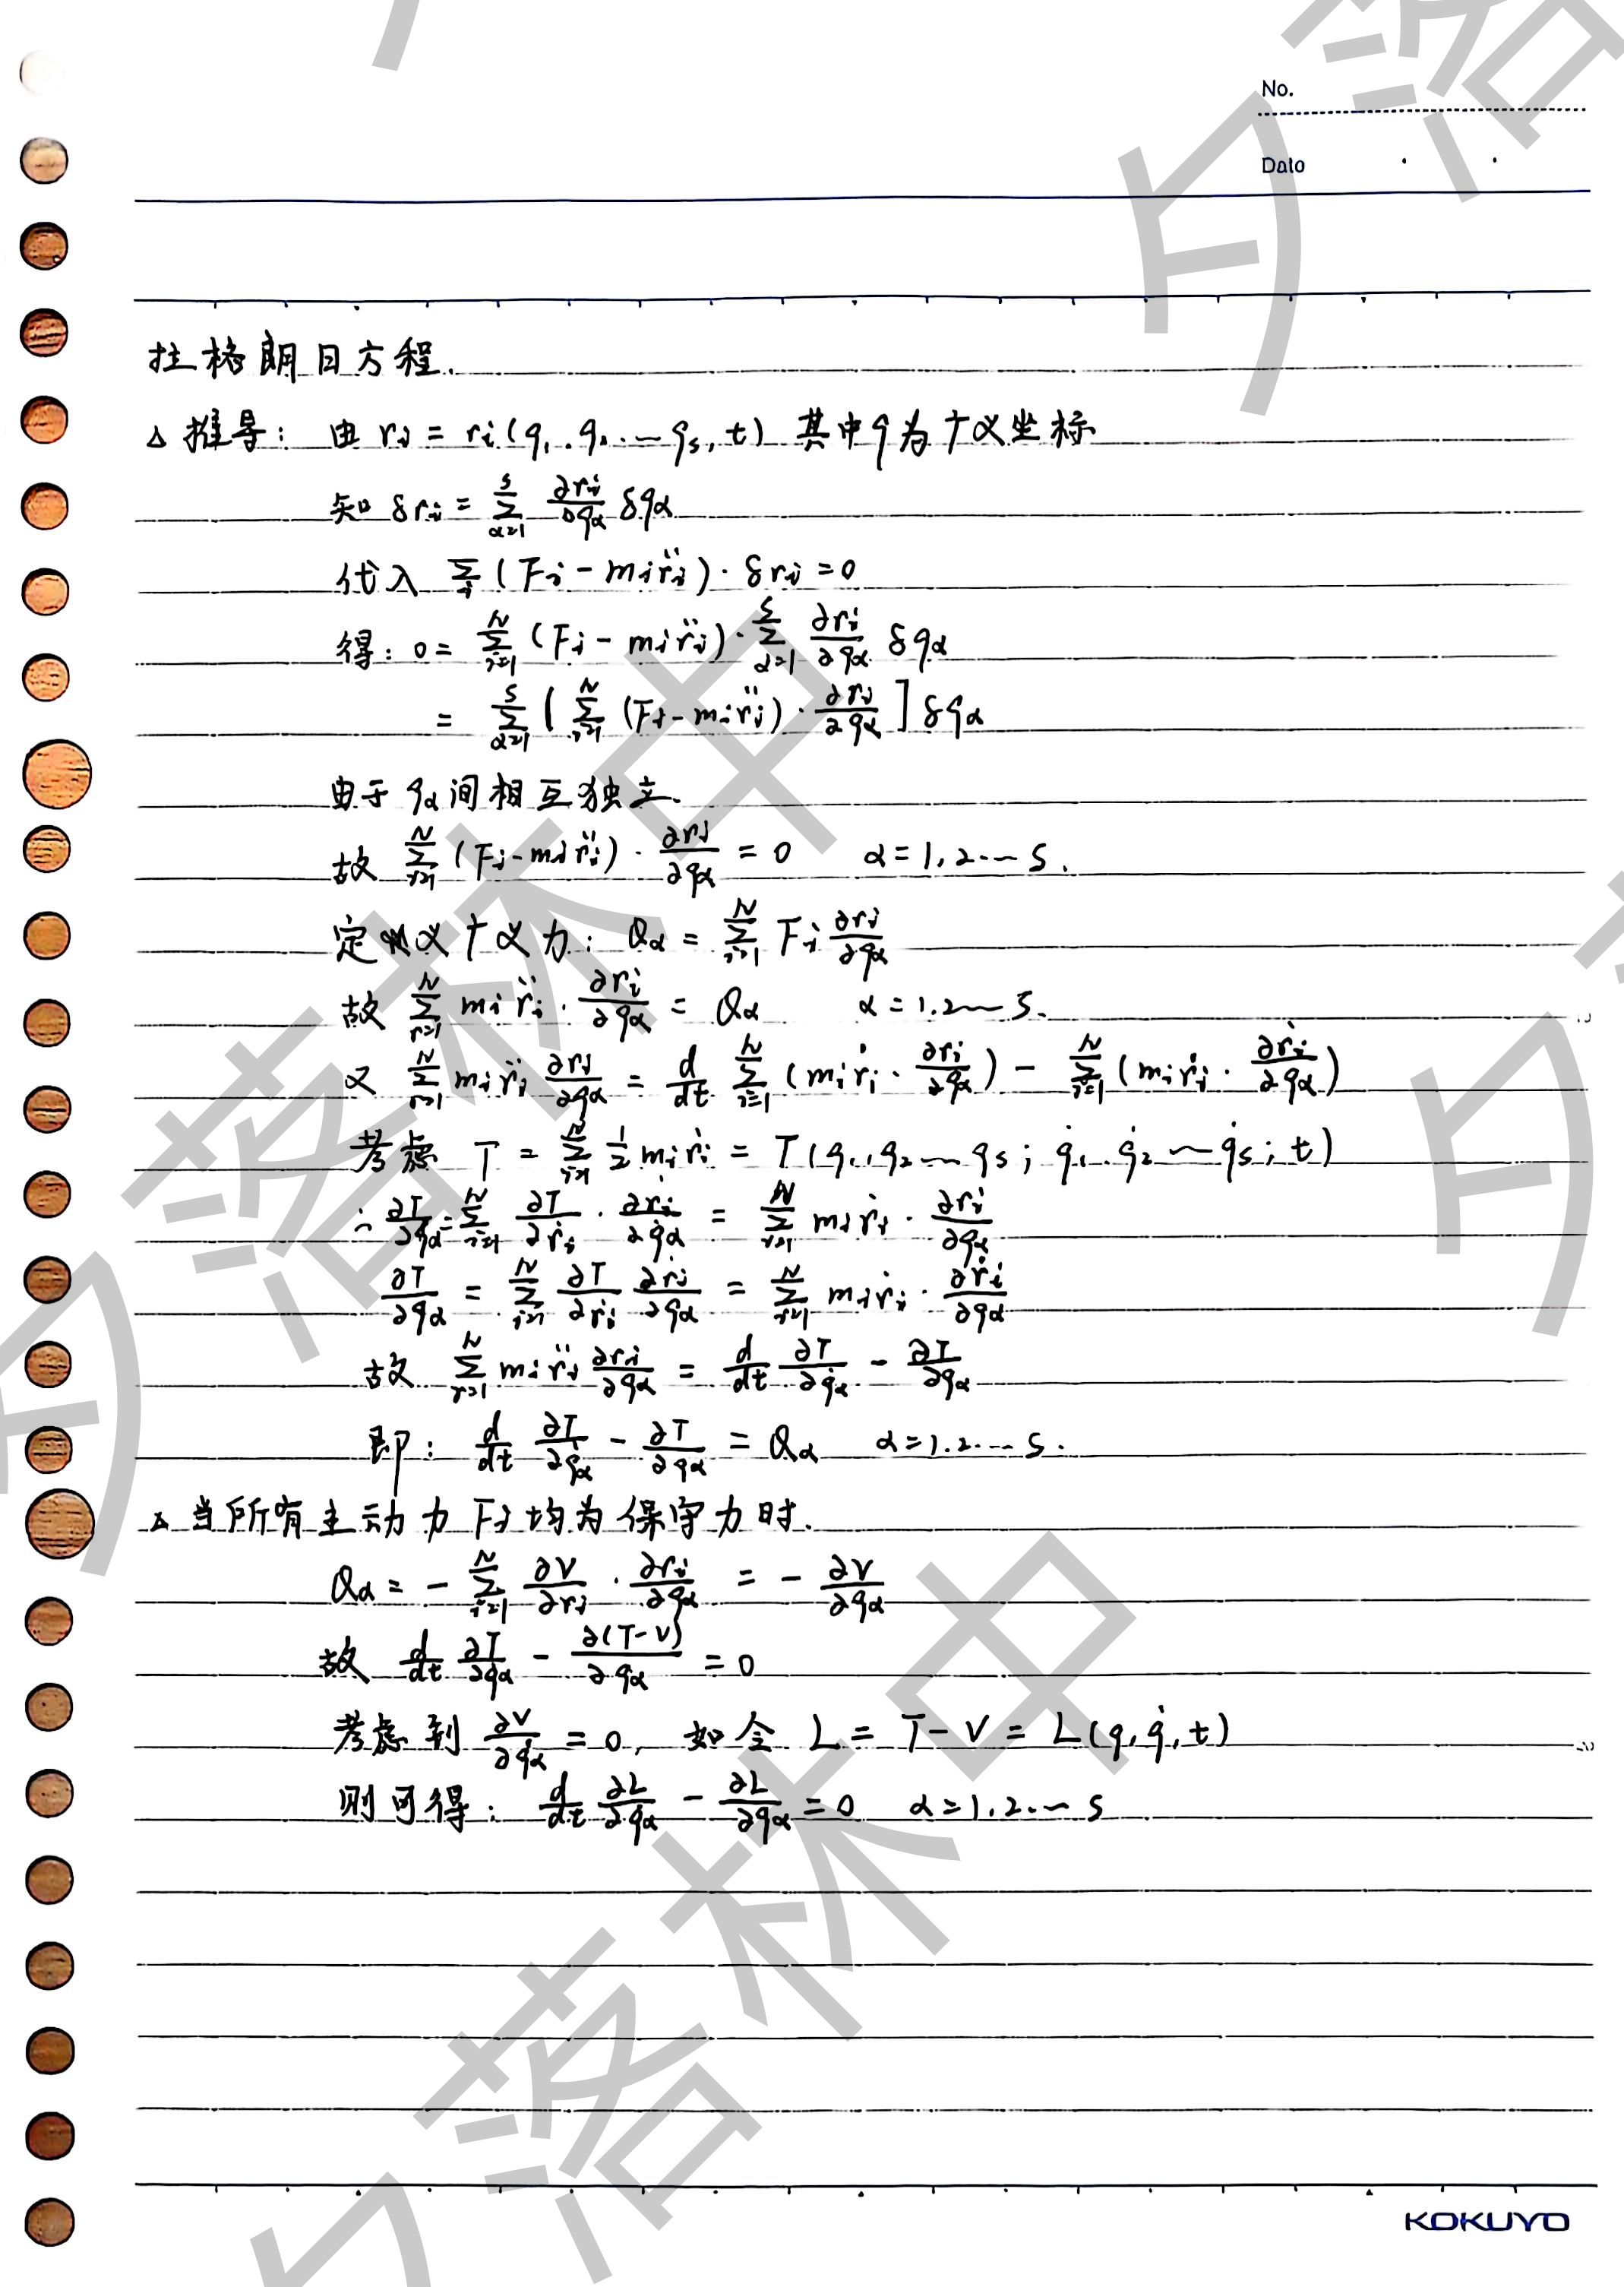 No.
Date
拉格朗日方程.
△ 推导: 由 rᵢ = rᵢ(q₁, q₂, … qₛ, t) 其中q为广义坐标
知 δrᵢ = Σ_{α=1}^{s} ∂rᵢ/∂qα δqα
代入 Σᵢ (Fᵢ - mᵢr̈ᵢ)·δrᵢ = 0
得: 0 = Σ_{i=1}^{N} (Fᵢ - mᵢr̈ᵢ)·Σ_{α=1}^{s} ∂rᵢ/∂qα δqα
= Σ_{α=1}^{s} [Σ_{i=1}^{N} (Fᵢ - mᵢr̈ᵢ)·∂rᵢ/∂qα] δqα
由于 qα 间相互独立.
故 Σ_{i=1}^{N} (Fᵢ - mᵢr̈ᵢ)·∂rᵢ/∂qα = 0 α = 1, 2 … s.
定义广义力: Qα = Σ_{i=1}^{N} Fᵢ ∂rᵢ/∂qα
故 Σ_{i=1}^{N} mᵢr̈ᵢ·∂rᵢ/∂qα = Qα α = 1, 2 … s.
又 Σ_{i=1}^{N} mᵢr̈ᵢ ∂rᵢ/∂qα = d/dt Σ_{i=1}^{N} (mᵢṙᵢ·∂rᵢ/∂qα) - Σ_{i=1}^{N} (mᵢṙᵢ·∂ṙᵢ/∂qα)
考虑 T = Σ_{i=1}^{N} 1/2 mᵢṙᵢ = T(q₁, q₂ … qₛ; q̇₁, q̇₂ … q̇ₛ; t)
∴ ∂T/∂q̇α = Σ_{i=1}^{N} ∂T/∂ṙᵢ·∂ṙᵢ/∂q̇α = Σ_{i=1}^{N} mᵢṙᵢ·∂rᵢ/∂qα
∂T/∂qα = Σ_{i=1}^{N} ∂T/∂ṙᵢ ∂ṙᵢ/∂qα = Σ_{i=1}^{N} mᵢṙᵢ·∂ṙᵢ/∂qα
故 Σ_{i=1}^{N} mᵢr̈ᵢ ∂rᵢ/∂qα = d/dt ∂T/∂q̇α - ∂T/∂qα
即: d/dt ∂T/∂q̇α - ∂T/∂qα = Qα α = 1, 2 … s.
△ 当所有主动力 Fᵢ 均为保守力时.
Qα = - Σ_{i=1}^{N} ∂V/∂rᵢ·∂rᵢ/∂qα = - ∂V/∂qα
故 d/dt ∂T/∂q̇α - ∂(T-V)/∂qα = 0
考虑到 ∂V/∂q̇α = 0, 如令 L = T - V = L(q, q̇, t)
则可得: d/dt ∂L/∂q̇α - ∂L/∂qα = 0 α = 1, 2 … s
KOKUYO
夕落林中
夕落林中